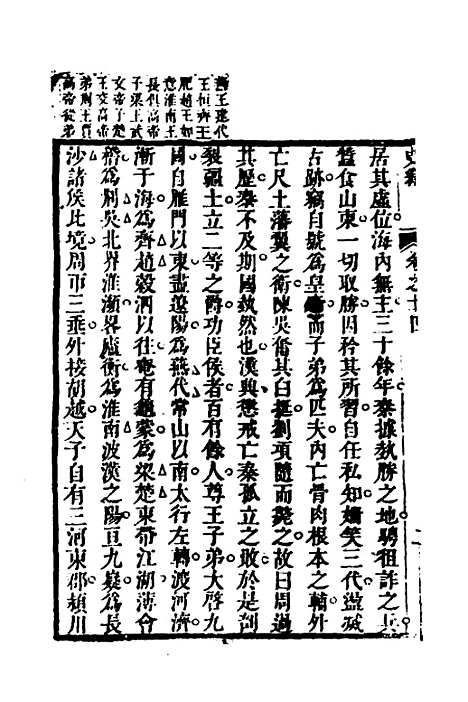 史緯
卷之十四
二
居其虛位海內無主三十餘年秦據執勝之地騁狙詐之兵
蠶食山東一切取勝因矜其所習自任私知姍笑三代盪滅
古跡竊自號爲皇帝而子弟爲匹夫內亡骨肉根本之輔外
亡尺土藩翼之衛陳吳奮其白挺劉項隨而斃之故曰周過
其歷秦不及期國埶然也漢興懲戒亡秦孤立之敗於是剖
裂疆土立二等之爵功臣侯者百有餘人尊王子弟大啓九
國自雁門以東盡遼陽爲燕代常山以南太行左轉渡河濟
漸于海爲齊趙榖泗以往奄有龜蒙爲梁楚東帶江湖薄會
稽爲荆吳北界淮瀕畧廬衡爲淮南波漢之陽亘九嶷爲長
沙諸侯比境周帀三垂外接胡越天子自有三河東郡潁川
燕王建代
王恒齊王
肥趙王如
意淮南王
長俱高帝
子梁王武
文帝子楚
王交高帝
弟荆王賈
高帝從弟